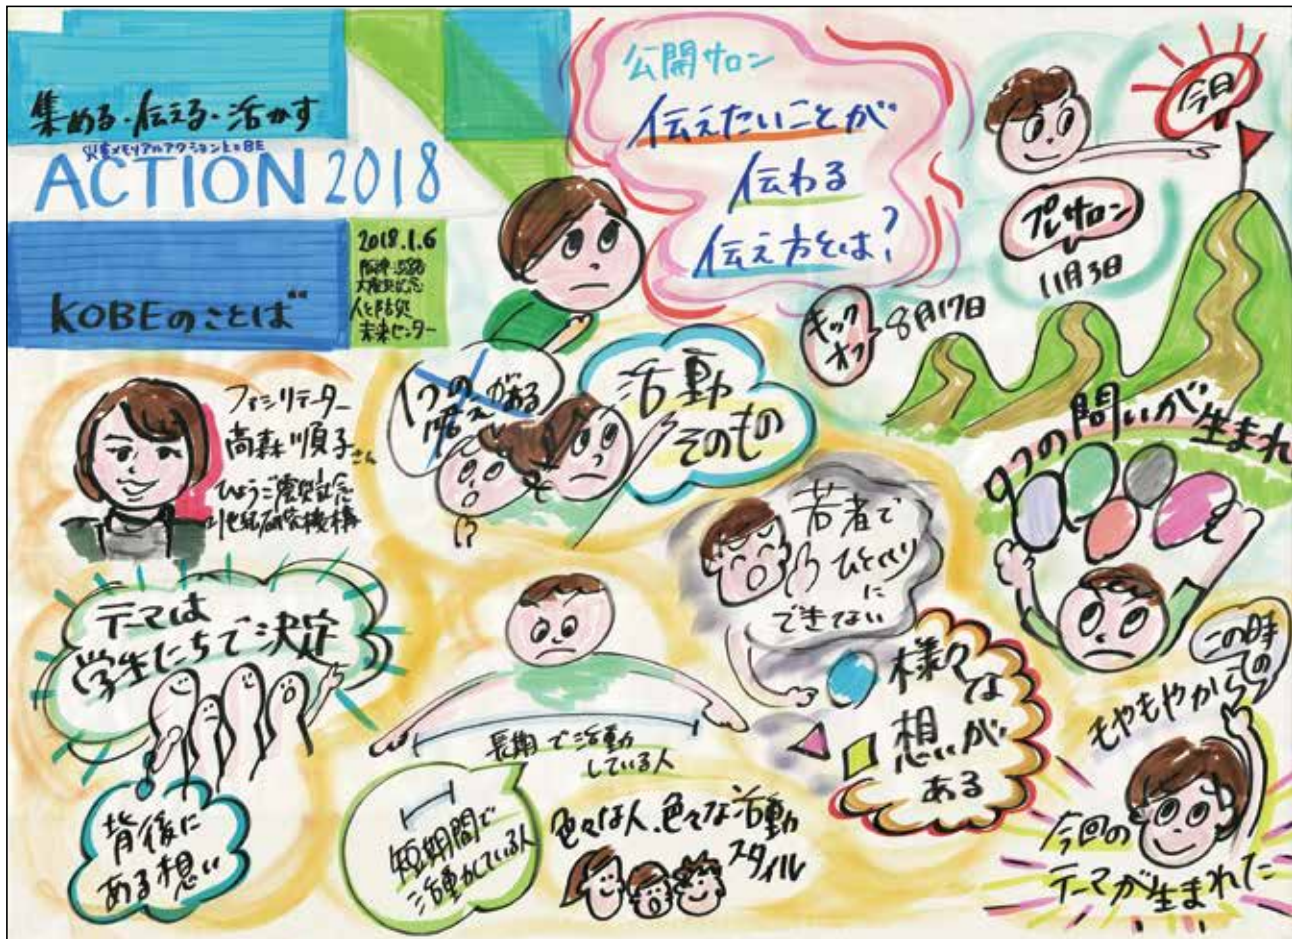 集める・伝える・活かす
災害メモリアルアクションKOBE
ACTION 2018
KOBEのことば
2018.1.6
阪神・淡路
大震災記念
人と防災
未来センター
公開サロン
伝えたいことが
伝わる
伝え方とは?
今日
プレサロン
11月3日
キック
オフ
8月17日
ファシリテーター
高森順子さん
ひょうご震災記念
21世紀研究機構
1つの
答えがある
活動
そのもの
9つの問いが生まれ
若者で
ひとくくり
に
できない
テーマは
学生たちで決定
背後に
ある想い
長期で活動
している人
短期間で
活動している人
色々な人、色々な活動
スタイル
様々な
想いが
ある
この時
の
もやもやから
今回の
テーマが生まれた